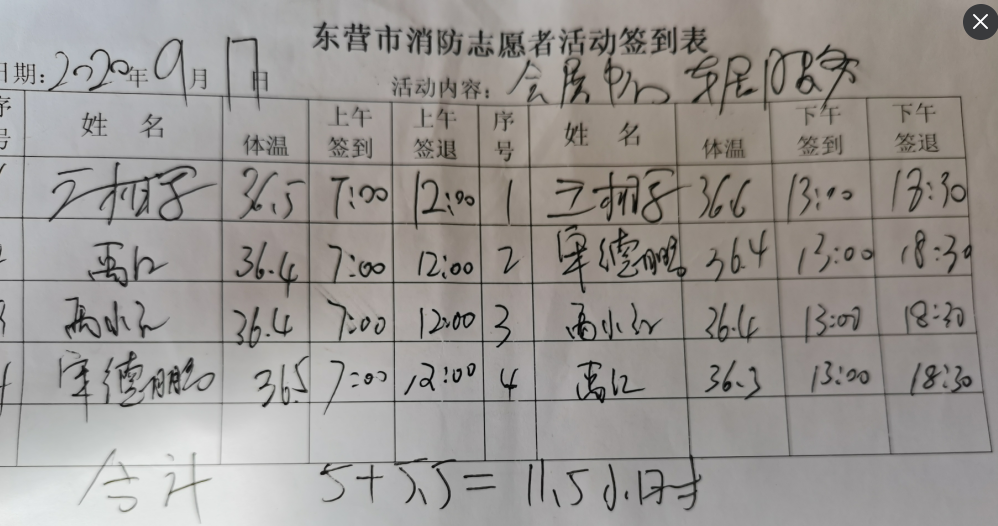 东营市消防志愿者活动签到表
日期：2020年9月17日 活动内容：会展中心 服务
序号 姓名 体温 上午签到 上午签退 序号 姓名 体温 下午签到 下午签退
36.5 7:00 12:00 1 36.6 13:00 18:30
2 禹红 36.4 7:00 12:00 2 德鹏 36.4 13:00 18:30
3 禹小红 36.4 7:00 12:00 3 禹小红 36.4 13:00 18:30
4 德鹏 36.5 7:00 12:00 4 禹红 36.3 13:00 18:30
合计 5+5.5=11.5小时